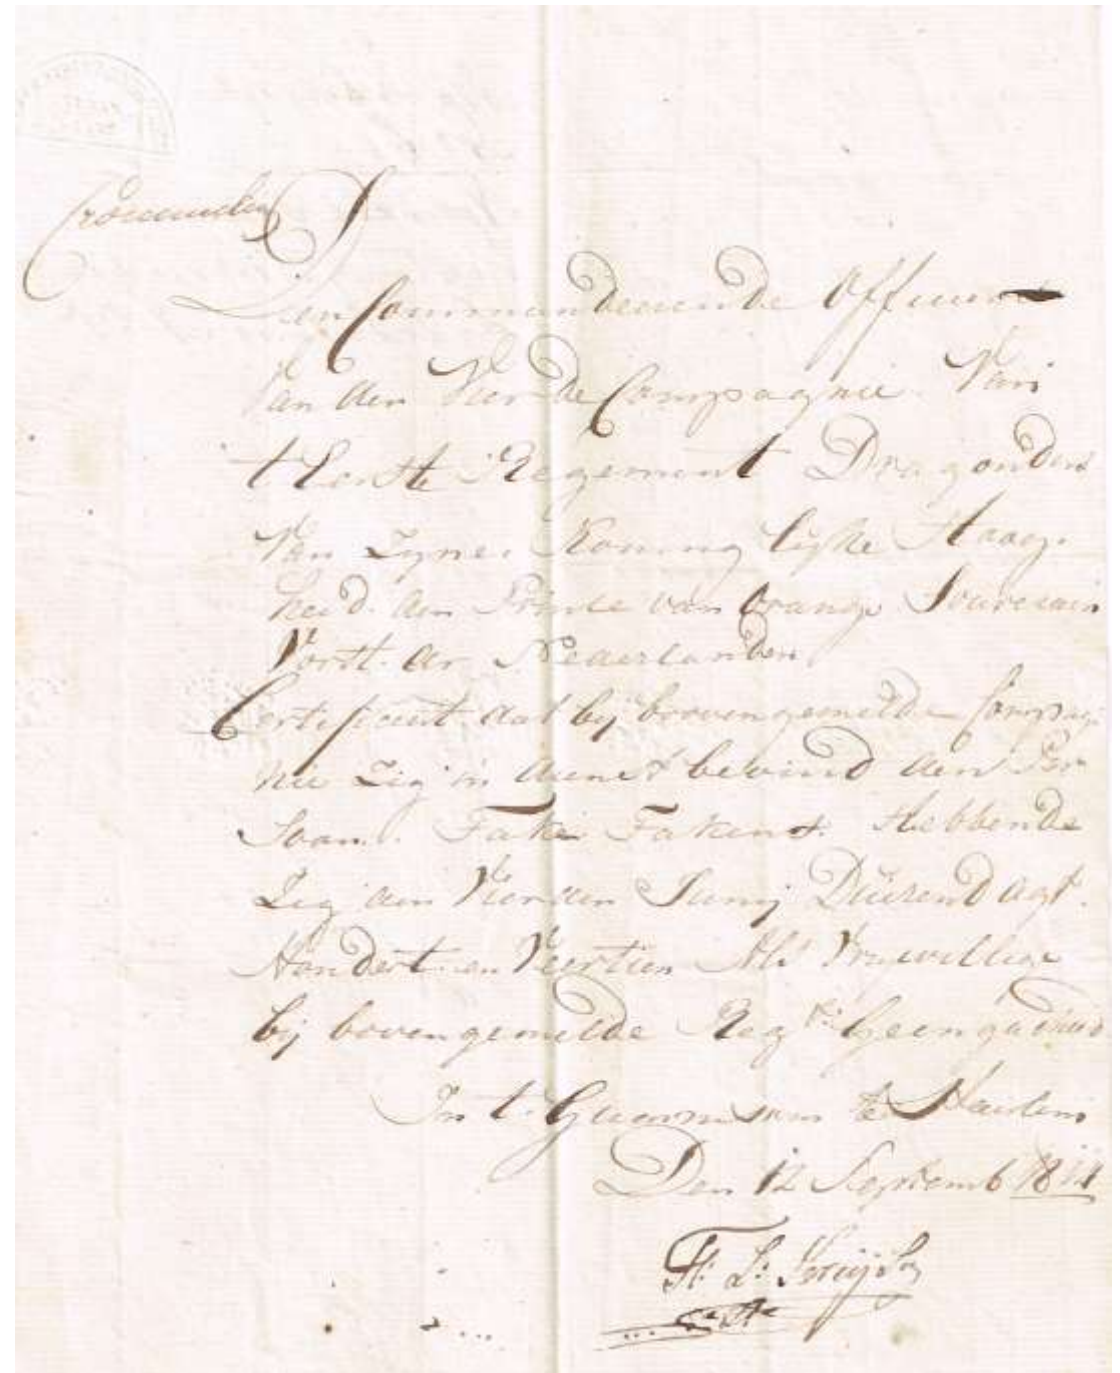 Den Commandeerende Officier
Van den Vierde Compagnie Van
t Eerste Regement Dragonders
Van Zyne Koninglyke Hoog.
heid. den Prinse van Orange Souverain
Vorst. der Nederlanden
Certificeert dat bij bovengemelde Compag
nie Zig in dienst bevind den Per
soon. Fake Fakens. Hebbende
Zig den Vierden Junij Duizend agt.
Hondert en Veertien Als Vrywillige
bij bovengemelde Regt: Geengageerd
In t. Guarnisoen te Haarlem
Den 12 Septemb 1814